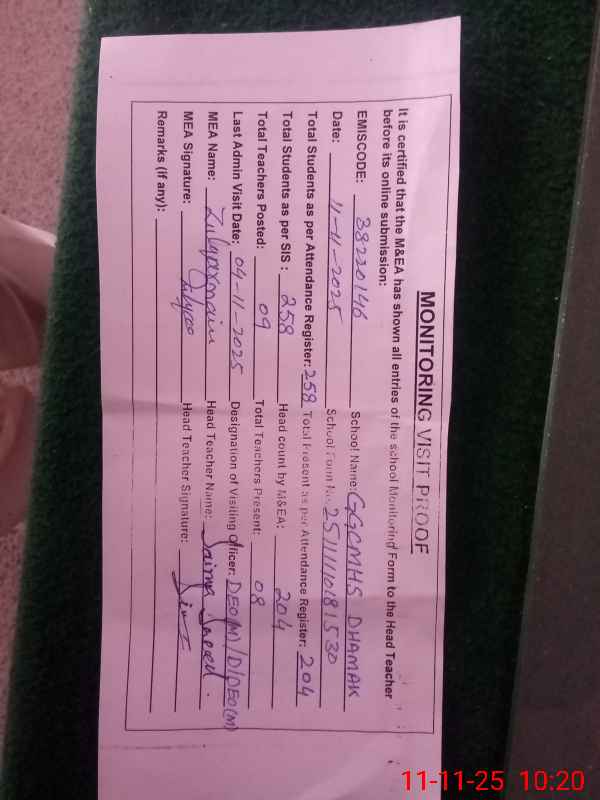 MONITORING VISIT PROOF
It is certified that the M&EA has shown all entries of the school Monitoring Form to the Head Teacher
before its online submission:
EMISCODE: 38230146 School Name: GGCMHS DHAMAK
Date: 11-11-2025 School Form No. 2511110181530
Total Students as per Attendance Register: 258 Total Present as per Attendance Register: 204
Total Students as per SIS : 258 Head count by M&EA: 204
Total Teachers Posted: 09 Total Teachers Present: 08
Last Admin Visit Date: 04-11-2025 Designation of Visiting Officer: DEO(M)/D/DEO(M)
MEA Name: Head Teacher Name: Saima
MEA Signature: Head Teacher Signature:
Remarks (if any):
11-11-25 10:20